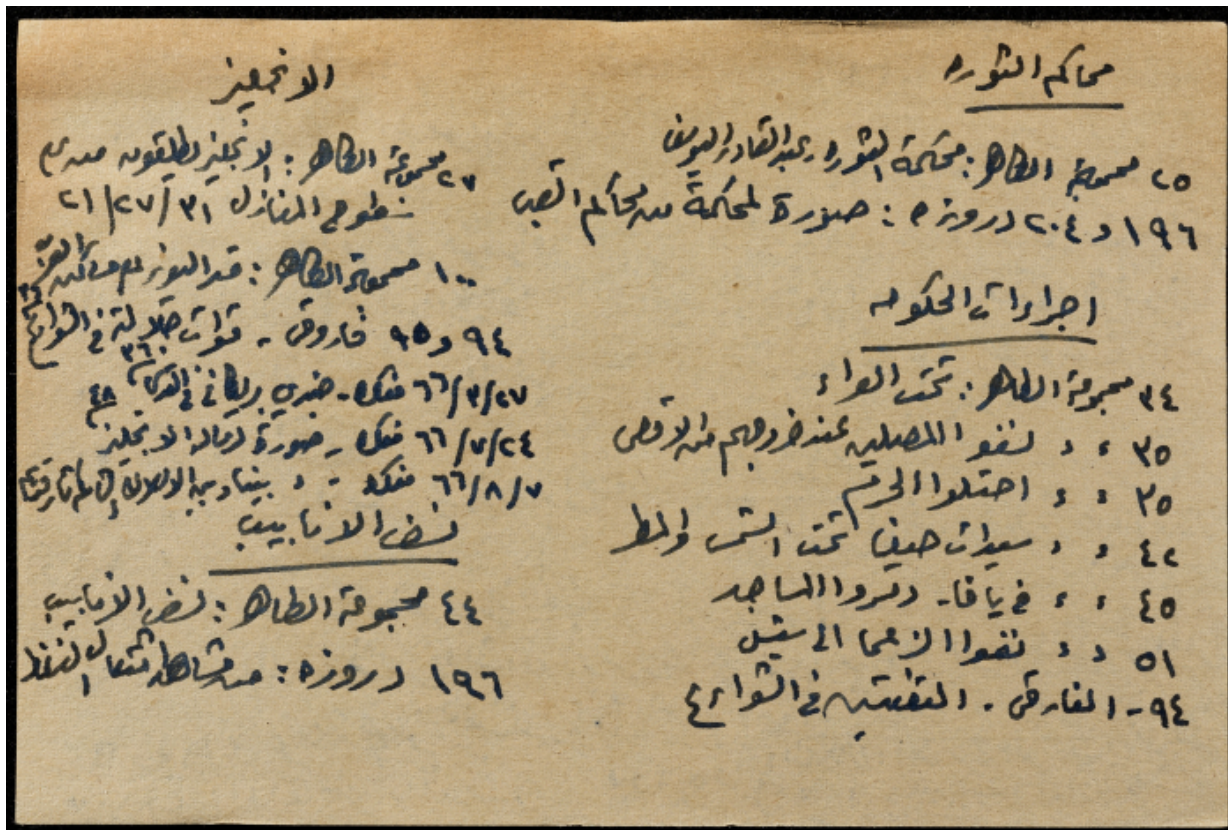 محاكم الثوره
٢٥ مجموعة الطاهر: محكمة الثوره، عبد القادر اليوسف
١٩٦ و ٢٠٤ دروزه: صورة لمحكمة من محاكم الشعب
اجراءات الحكومه
٣٤ مجموعة الطاهر: تحت العراء
٣٥ ، ، لمنعوا المصلين عند خروجهم من الاقصى
٣٥ ، ، احتلوا الحرم
٤٢ ، ، سيدات حيفا تحت الشمس والمطر
٤٥ ، ، في يافا. دمروا المساجد
٥١ ، ، نفوا الزعما الى سيشل
٩٤ - الفاروقي. التفتيش في الشوارع
الانجليز
٢٧ مجموعة الطاهر: الانجليز يطلقون من على
سطوح المنازل ٣١/٢٧/٢١
١٠٠ مجموعة الطاهر:
٩٤ و ٩٥ فاروقي - قوات في الشوارع
٦٦/٣/٢٧ فلك - جندي بريطاني في القدس
٦٦/٧/٢٤ فلك - صورة الانجليز
٦٦/٨/٧ فلك - ،
نسف الانابيب
٤٤ مجموعة الطاهر: نسف الانابيب
١٩٦ دروزه: من اشتعال النفط